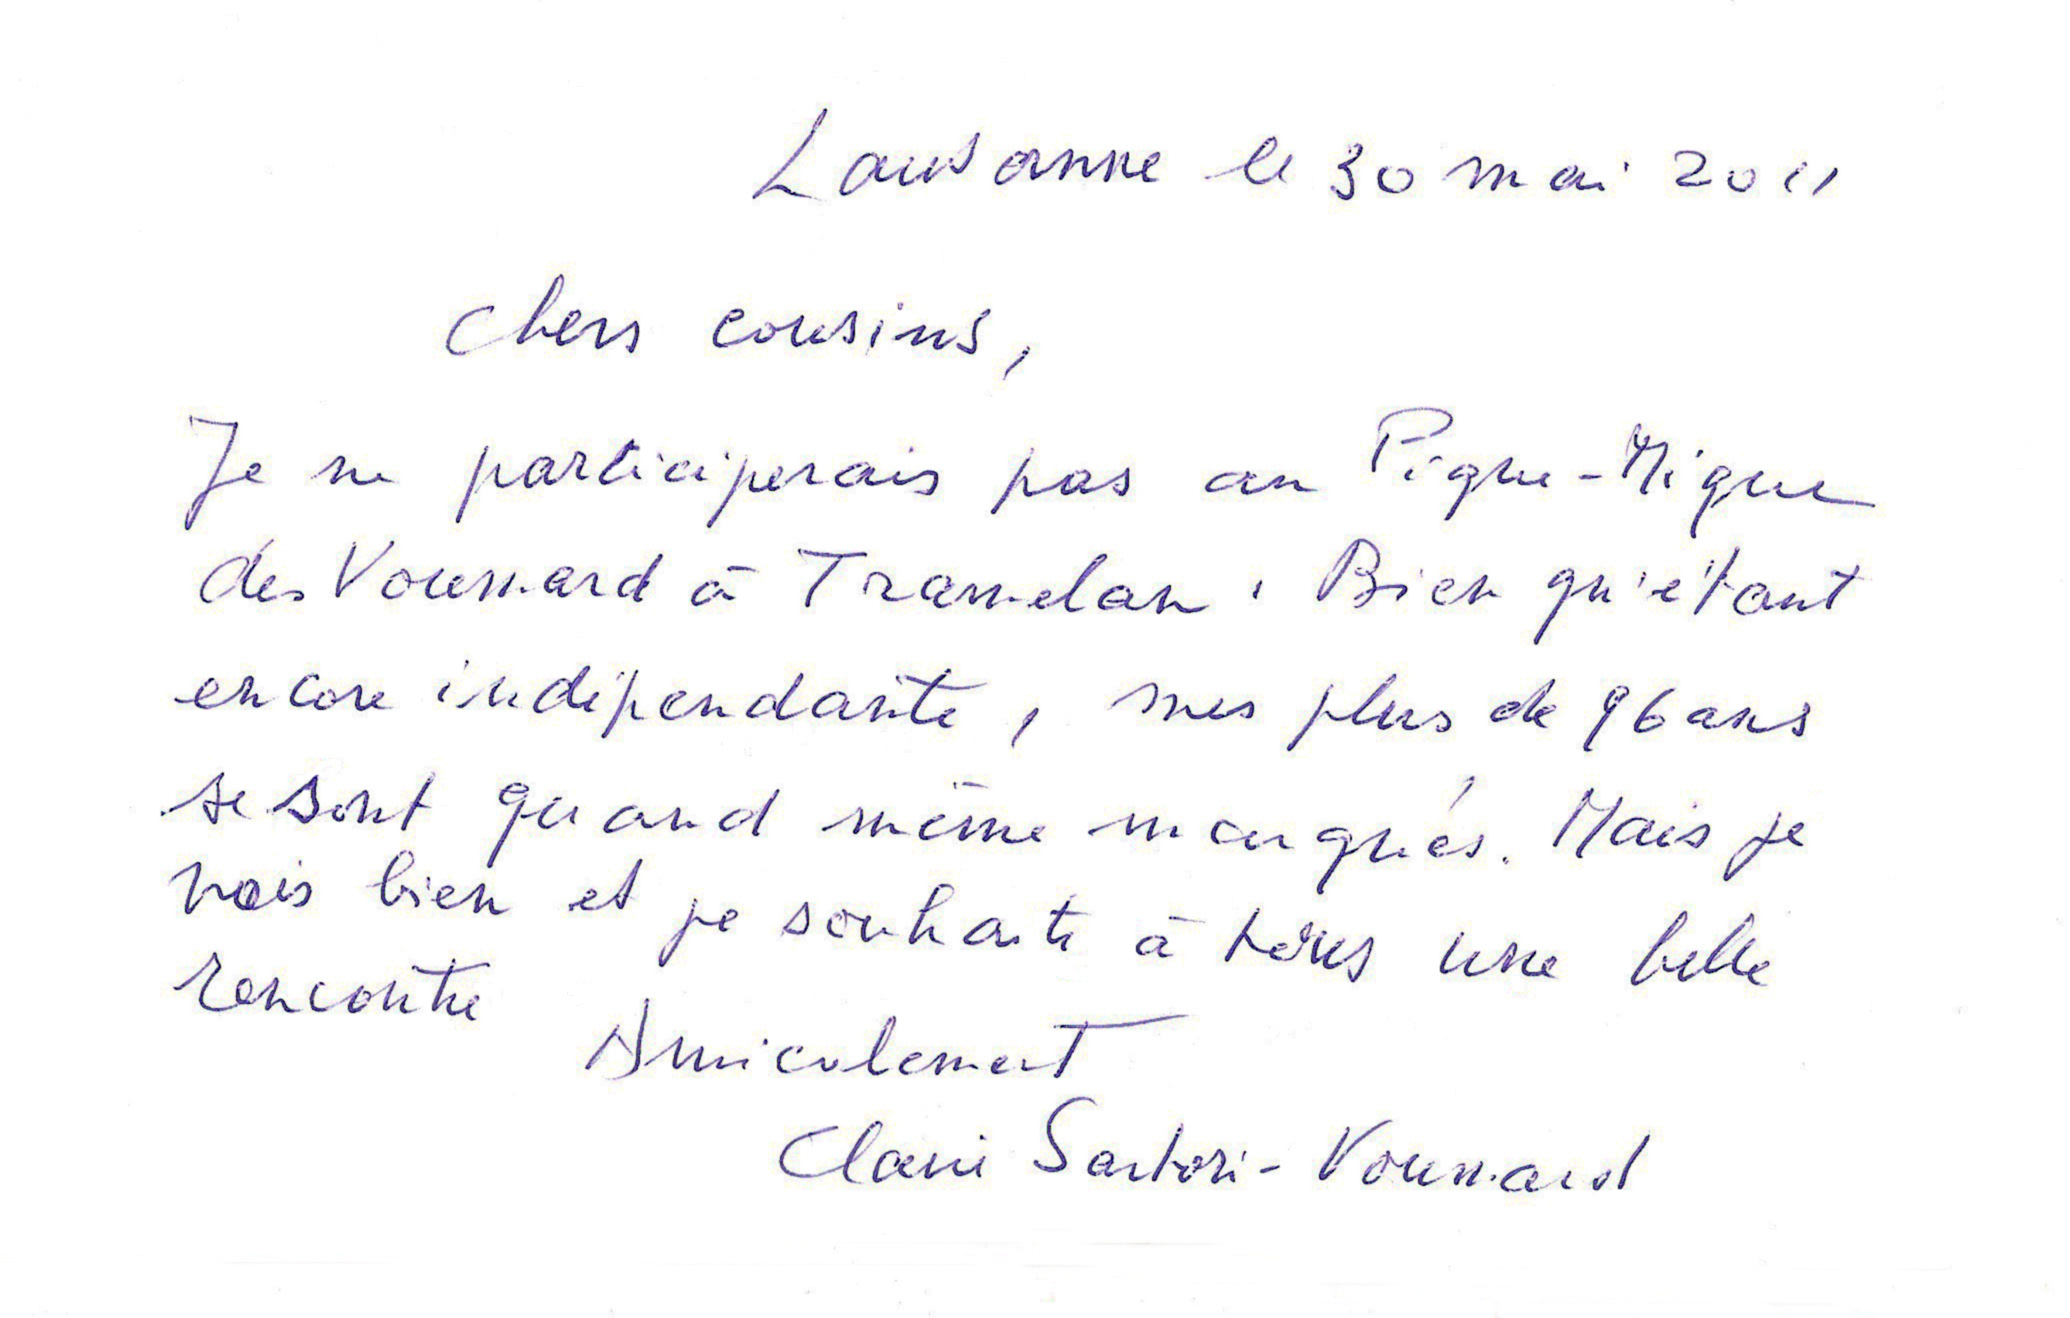 Lausanne le 30 mai 2011
Chers cousins,
Je ne participerais pas au Pique-Nique
des Voumard à Tramelan. Bien qu'étant
encore indépendante, mes plus de 96 ans
se sont quand même marqués. Mais je
vais bien et je souhaite à tous une belle
rencontre
Amicalement
Claire Sartori-Voumard